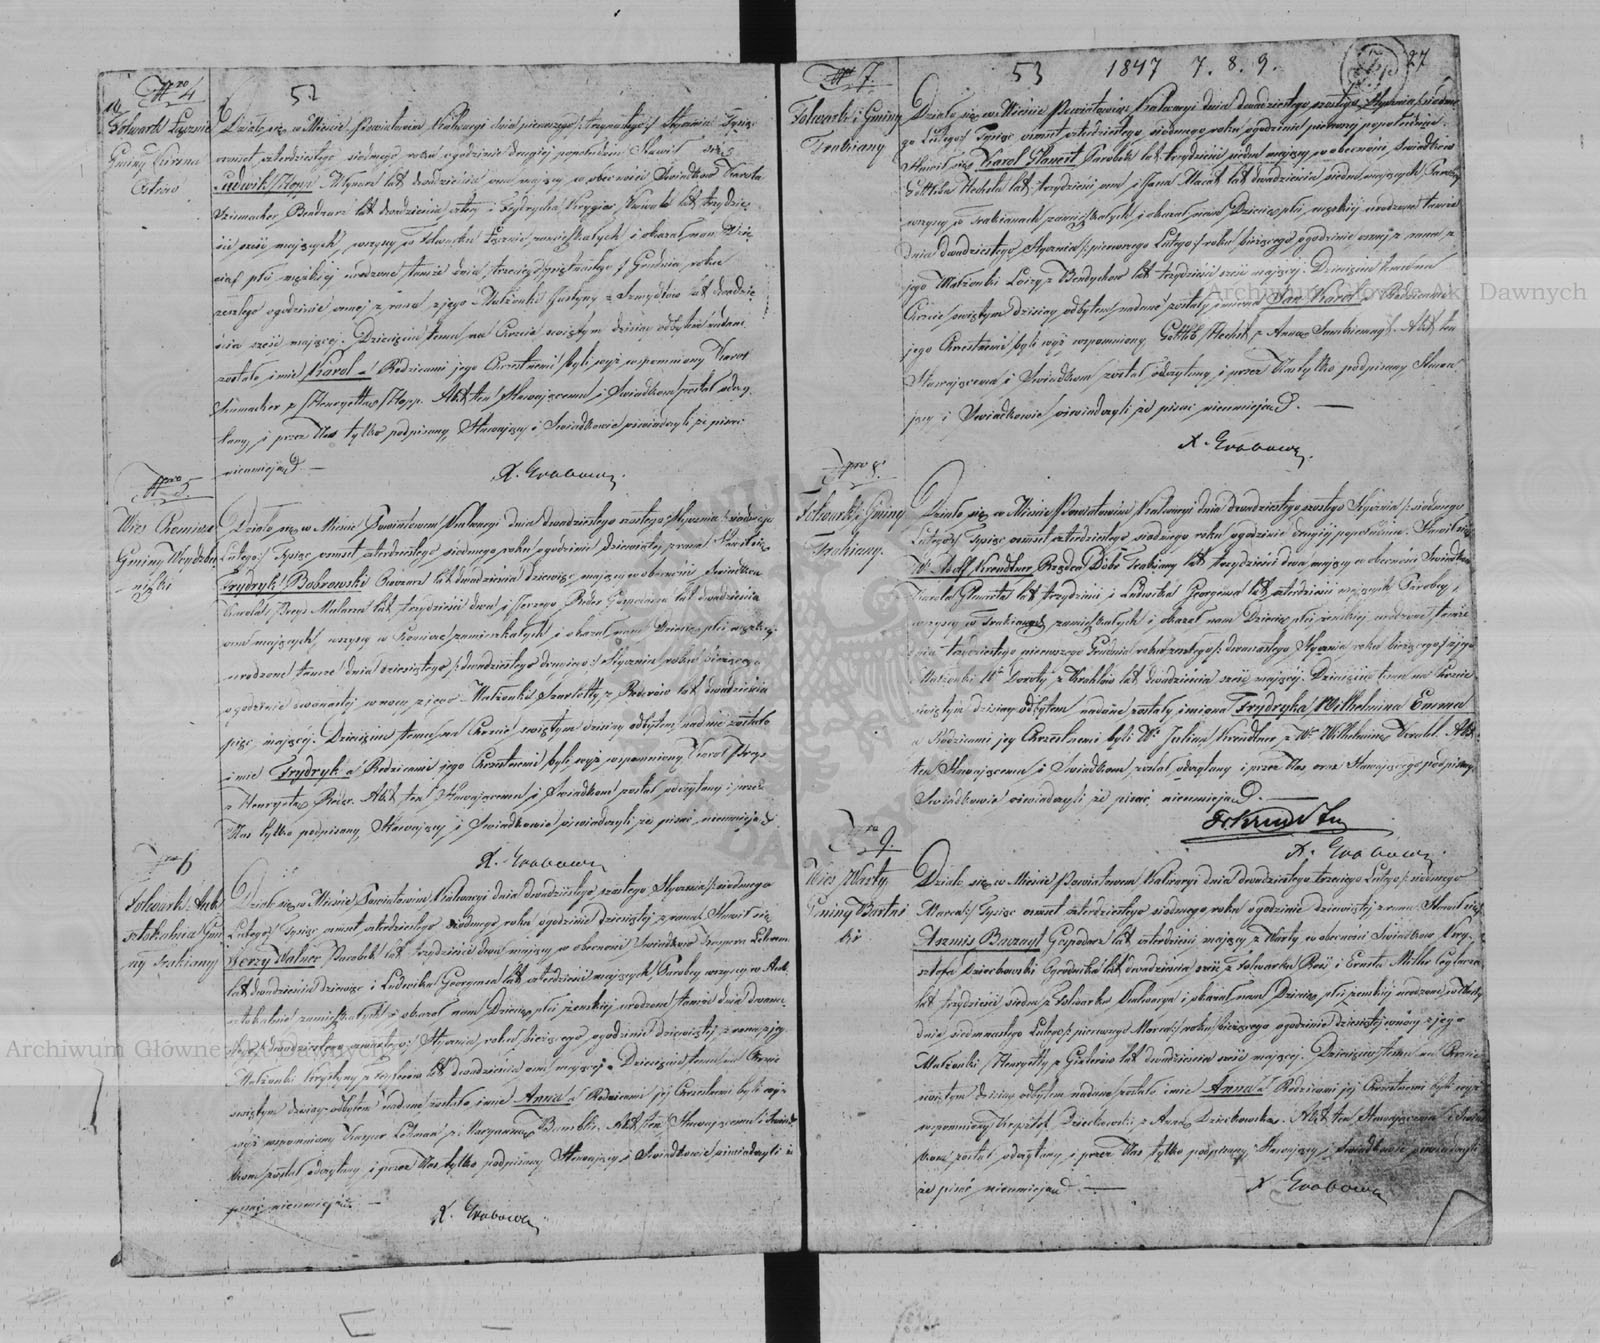 52
Nro 4
Folwark Łąznie
Gminy
Działo się w Mieście Powiatowem Kalwaryi dnia pierwszego /: trzynastego :/ Stycznia Tysiąc
ośmset czterdziestego siódmego roku o godzinie drugiej popołudniu Stawił się
Ludwik Młynarz lat dwadzieścia ośm mający w obecności Świadków Karola
Szumacher Bednarz lat dwadzieścia cztery i Frydrycha Kowala lat trzydzie-
ści sześć mających, wszyscy w Folwarku zamieszkałych i okazał nam Dzie-
cię płci męzkiej urodzone tamże dnia Grudnia roku
zeszłego o godzinie ósmej z rana z jego Małżonki Justyny z Szmydtów lat dwadzie-
ścia sześć mającej. Dziecięciu temu na Chrzcie świętym dzisiaj odbytem nadane
zostało imie Karol a Rodzicami jego Chrzestnemi byli wyż wspomniony Karol
Szumacher z Henryettą Akt ten Stawającemu i Świadkom został odczy-
tany, i przez Nas tylko podpisany, Stawający i Świadkowie oświadczyli że pisać
nieumieją.
X. Grabowski
Nro 5
Wieś
Gminy
Działo się w Mieście Powiatowem Kalwaryi dnia dwudziestego szóstego Stycznia /: siódmego
Lutego :/ Tysiąc ośmset czterdziestego siódmego roku o godzinie dziewiątej z rana Stawił się
Frydryk Bobrowski lat dwadzieścia dziewięć mający w obecności Świadków
Karola Malarza lat trzydzieści dwa i Jerzego Reder Gospodarza lat dwadzieścia
ośm mających, wszyscy w zamieszkałych i okazał nam Dziecię płci męzkiej
urodzone tamże dnia dziesiątego /: dwudziestego drugiego :/ Stycznia roku bieżącego
o godzinie dwónastej w nocy z jego Małżonki Szarlotty z Rederów lat dwadzieścia
pięć mającej. Dziecięciu temu na Chrzcie świętym dzisiaj odbytem nadane zostało
imie Frydryk a Rodzicami jego Chrzestnemi byli wyż wspomniony Karol
z Henryettą Reder. Akt ten Stawającemu i Świadkom został odczytany i przez
Nas tylko podpisany, Stawający i Świadkowie oświadczyli że pisać nieumieją
X. Grabowski
Nro 6
Folwark
Gmi-
ny Trakiany
Działo się w Mieście Powiatowem Kalwaryi dnia dwudziestego szóstego Stycznia /: siódmego
Lutego :/ Tysiąc ośmset czterdziestego siódmego roku o godzinie dziesiątej z rana Stawił się
Jerzy Walner Parobek lat trzydzieści dwa mający w obecności Świadków Kaspra Lehman
lat dwadzieścia dziewięć i Ludwika Georgensa lat czterdzieści mających, Parobcy wszyscy w
zamieszkałych i okazał nam Dziecię płci żeńskiej urodzone tamże dnia dwuna-
stego /: dwudziestego czwartego :/ Stycznia roku bieżącego o godzinie dziewiątej z rana z jego
Małżonki Krystyny z lat dwadzieścia ośm mającej. Dziecięciu temu na Chrzcie
świętym dzisiaj odbytem nadane zostało imie Anna a Rodzicami jej Chrzestnemi byli wy-
wyż wspomniany Kasper Lehman z Maryanną Akt ten Stawającemu i Świad-
kom został odczytany i przez Nas tylko podpisany Stawający i Świadkowie oświadczyli że
pisać nieumieją.
X. Grabowski
53 1847 7. 8. 9. 27
Nro 7
Folwark i Gminy
Trakiany
Działo się w Mieście Powiatowem Kalwaryi dnia dwudziestego szóstego Stycznia /: siódme-
go Lutego :/ Tysiąc ośmset czterdziestego siódmego roku o godzinie pierwszej popołudniu.
Stawił się Karol Glanert Parobek lat trzydzieści siedm mający w obecności Świadków
Gottliba Hechela lat trzydzieści ośm i Jana Macat lat dwadzieścia siedm mających Parobcy
wszyscy w Trakianach zamieszkałych i okazał nam Dziecię płci męzkiej urodzone tamże
dnia dwudziestego Stycznia /: pierwszego Lutego :/ roku bieżącego o godzinie ósmej z rana z
jego Małżonki Loizy z lat trzydzieści sześć mającej. Dziecięciu temu na
Chrzcie świętym dzisiaj odbytem nadane zostały imiona Jan Karol a Rodzicami
jego Chrzestnemi byli wyż wspomniony Gottlib Hechel z Anną Akt ten
Stawającemu i Świadkom został odczytany, i przez Nas tylko podpisany Stawa-
jący i Świadkowie oświadczyli że pisać nieumieją.
X. Grabowski
Nro 8
Folwark i Gminy
Trakiany.
Działo się w Mieście Powiatowem Kalwaryi dnia dwudziestego szóstego Stycznia /: siódmego
Lutego :/ Tysiąc ośmset czterdziestego siódmego roku o godzinie drugiej popołudniu. Stawił się
W. Adolf Krendtner Rządca Dóbr Trakiany lat trzydzieści dwa mający w obecności Świadków
Karola Glanerta lat trzydzieści i Ludwika Georgensa lat czterdzieści mających Parobcy,
wszyscy w Trakianach zamieszkałych i okazał nam Dziecię płci żeńskiej urodzone tamże
dnia trzydziestego pierwszego Grudnia roku zeszłego /: dwunastego Stycznia roku bieżącego :/ z jego
Małżonki W. Doroty z Krahlów lat dwadzieścia sześć mającej. Dziecięciu temu na Chrzcie
świętym dzisiaj odbytem nadane zostały imiona Frydryka Wilhelmina Emma
a Rodzicami jej Chrzestnemi byli W. Julius Krendtner z W. Wilhelminą Krahl. Akt
ten Stawającemu i Świadkom został odczytany i przez Nas oraz Stawającego podpisany,
Świadkowie oświadczyli że pisać nieumieją.
X. Grabowski
Nro 9
Wieś Warty
Gminy
Działo się w Mieście Powiatowem Kalwaryi dnia dwudziestego trzeciego Lutego /: siódmego
Marca :/ Tysiąc ośmset czterdziestego siódmego roku o godzinie dziewiątej z rana. Stawił się
Gospodarz lat czterdzieści mający z Warty w obecności Świadków Krzy-
sztofa Dziechowski Ogrodnika lat dwadzieścia sześć z Folwarku i Ernsta Miller Ceglarza
lat trzydzieści siedm z Folwarku Kalwarya i okazał nam Dziecię płci żeńskiej urodzone w Warty
dnia siedmnastego Lutego /: pierwszego Marca :/ roku bieżącego o godzinie dziesiątej w nocy z jego
Małżonki Henryetty z Gizlerów lat dwadzieścia sześć mającej. Dziecięciu temu na Chrzcie
świętym dzisiaj odbytem nadane zostało imie Anna a Rodzicami jej Chrzestnemi byli wyż
wspomniony Krzysztof Dziechowski z Anną Dziechowską. Akt ten Stawającemu i Świad-
kom został odczytany, i przez Nas tylko podpisany Stawający i Świadkowie oświadczyli
że pisać nieumieją.
X. Grabowski
Archiwum Główne Akt Dawnych
Archiwum Główne Akt Dawnych